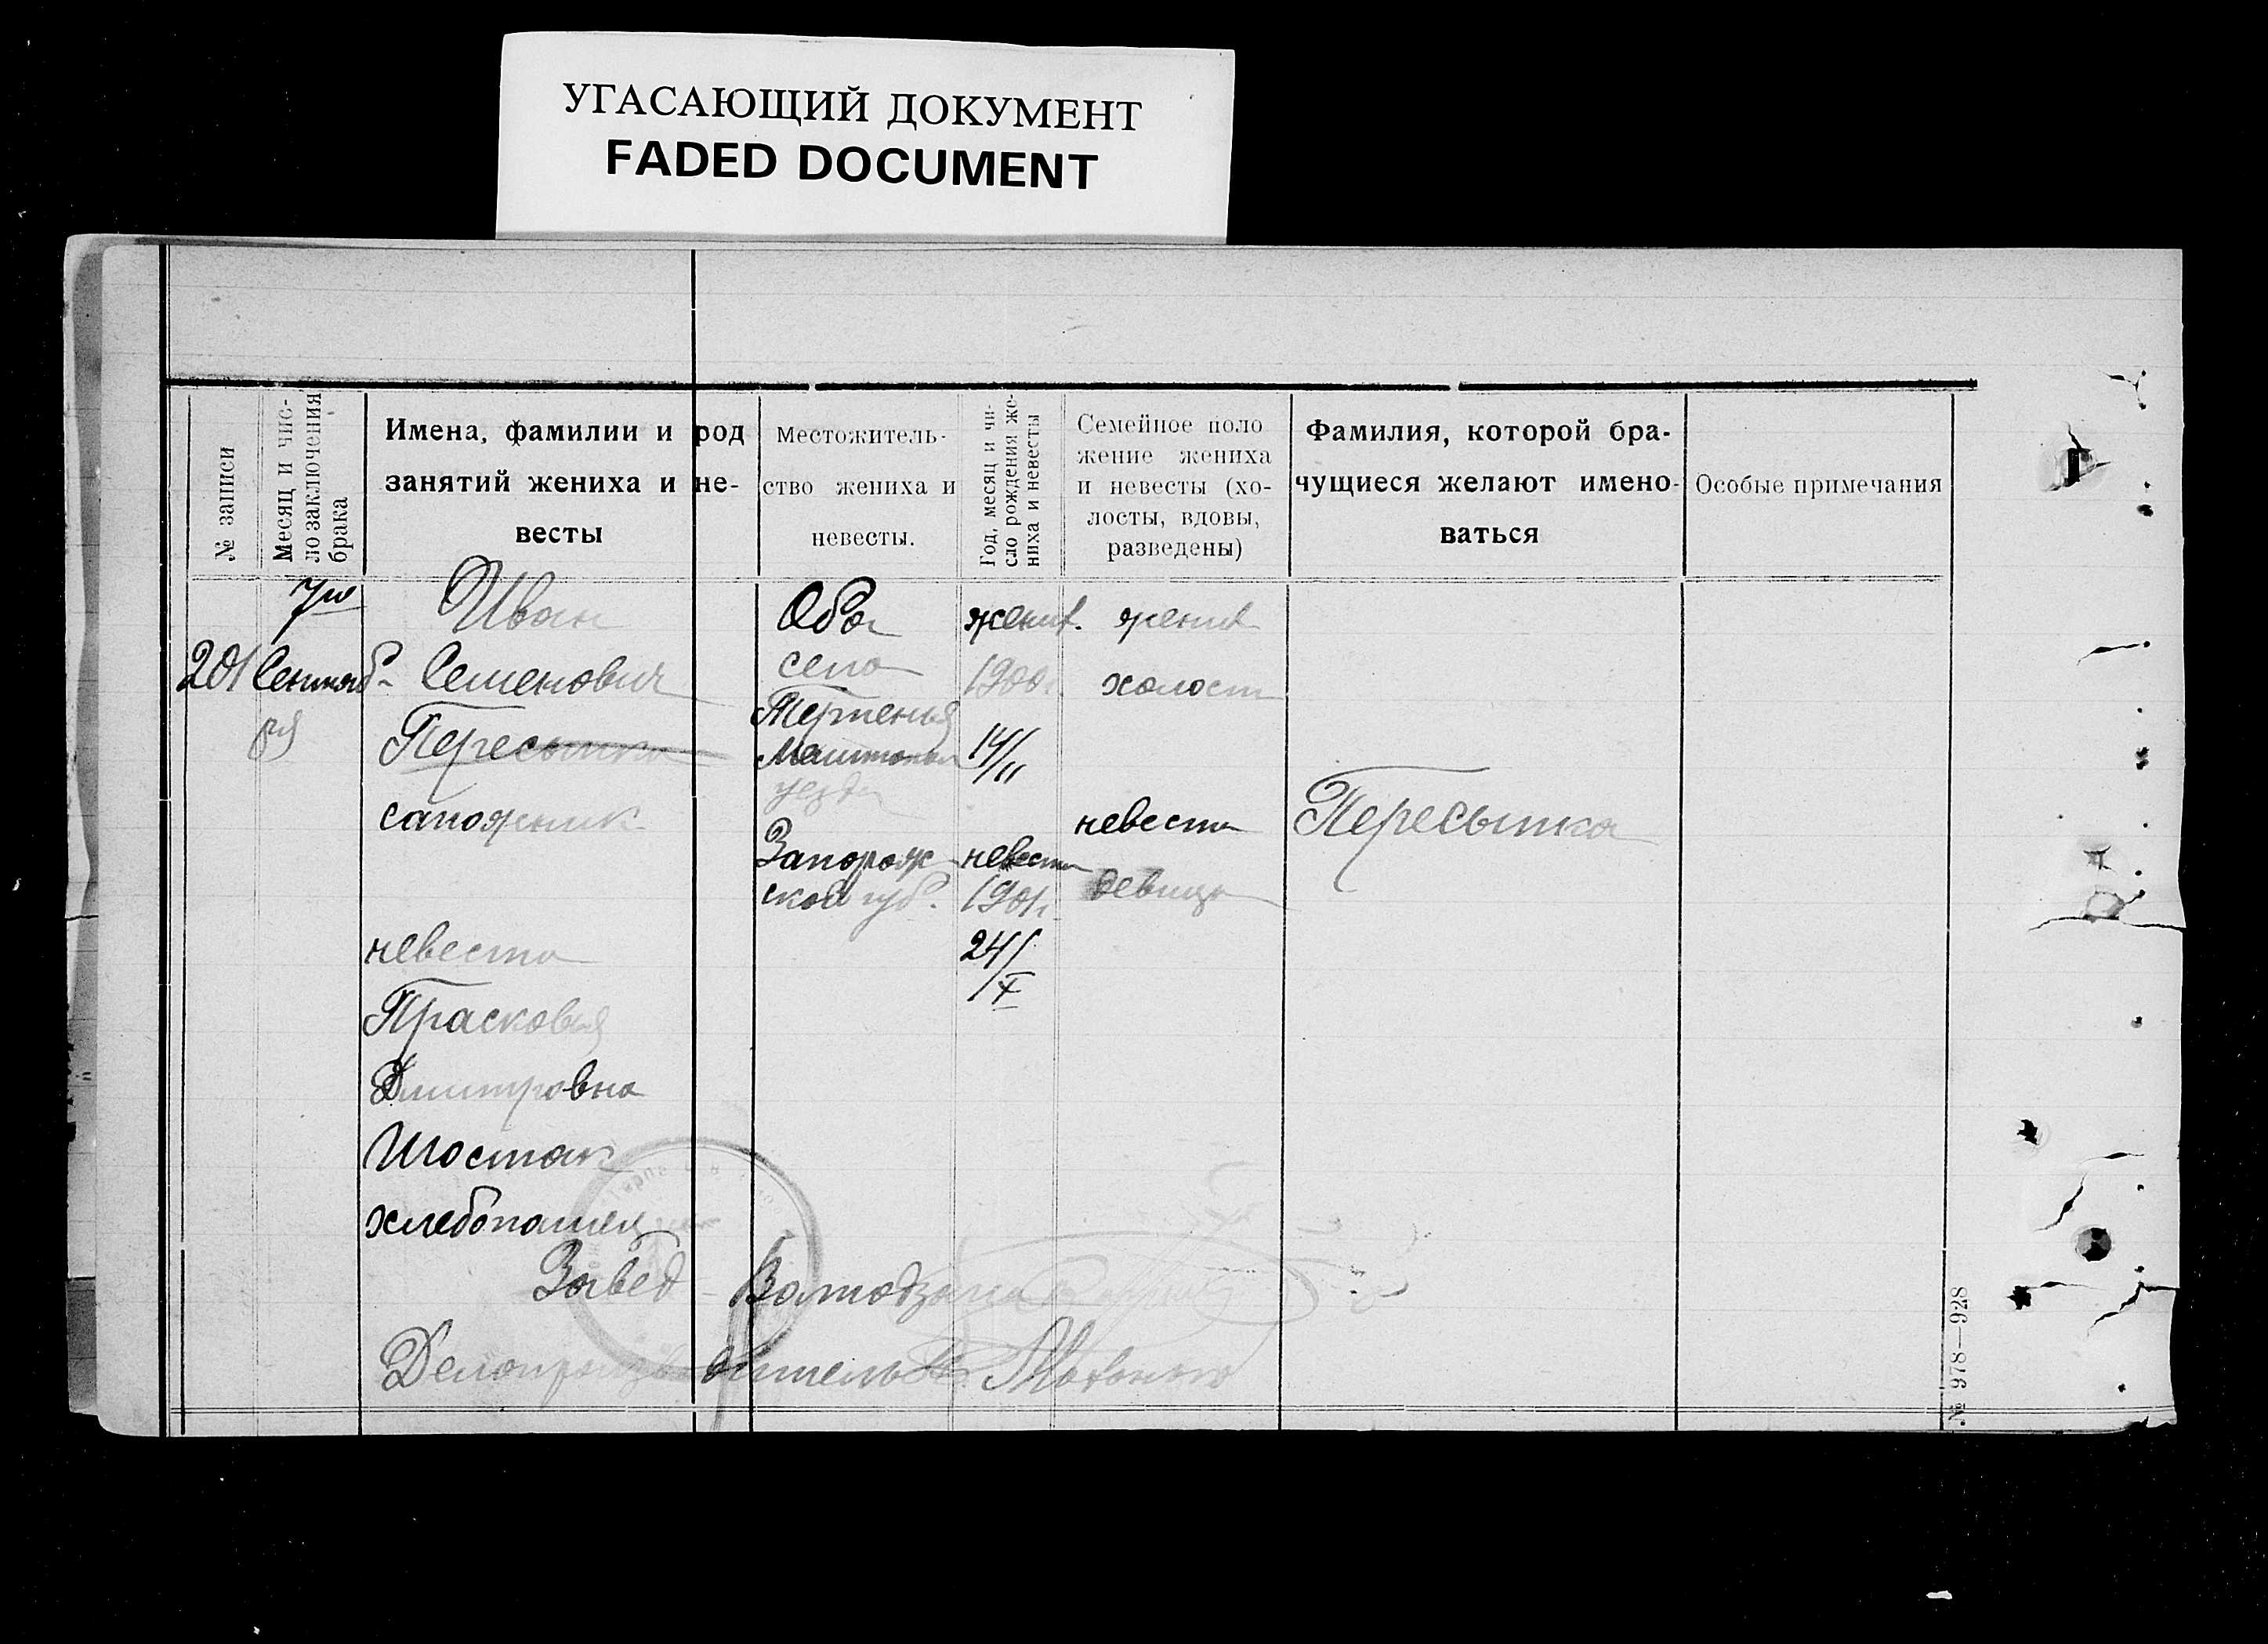 УГАСАЮЩИЙ ДОКУМЕНТ
FADED DOCUMENT
№ записи
Месяц и чис-
ло заключения
брака
Имена, фамилии и род
занятий жениха и не-
весты
Местожитель-
ство жениха и
невесты.
Год, месяц и чи-
сло рождения же-
ниха и невесты
Семейное поло
жение жениха
и невесты (хо-
лосты, вдовы,
разведены)
Фамилия, которой бра-
чущиеся желают имено-
ваться
Особые примечания
201
7го
Сентяб-
ря
Иван
Семенович
Пересыпка
сапожник
невеста
Прасковья
Дмитровна
Шостак
хлебопашец
Оба
села
уезда
Запорож
ской губ.
жених.
1900г.
14/II
невеста
1901г.
24/X
жених
холост
невеста
девица
Пересыпка
Завед
Делопроизводитель
№ 978—928